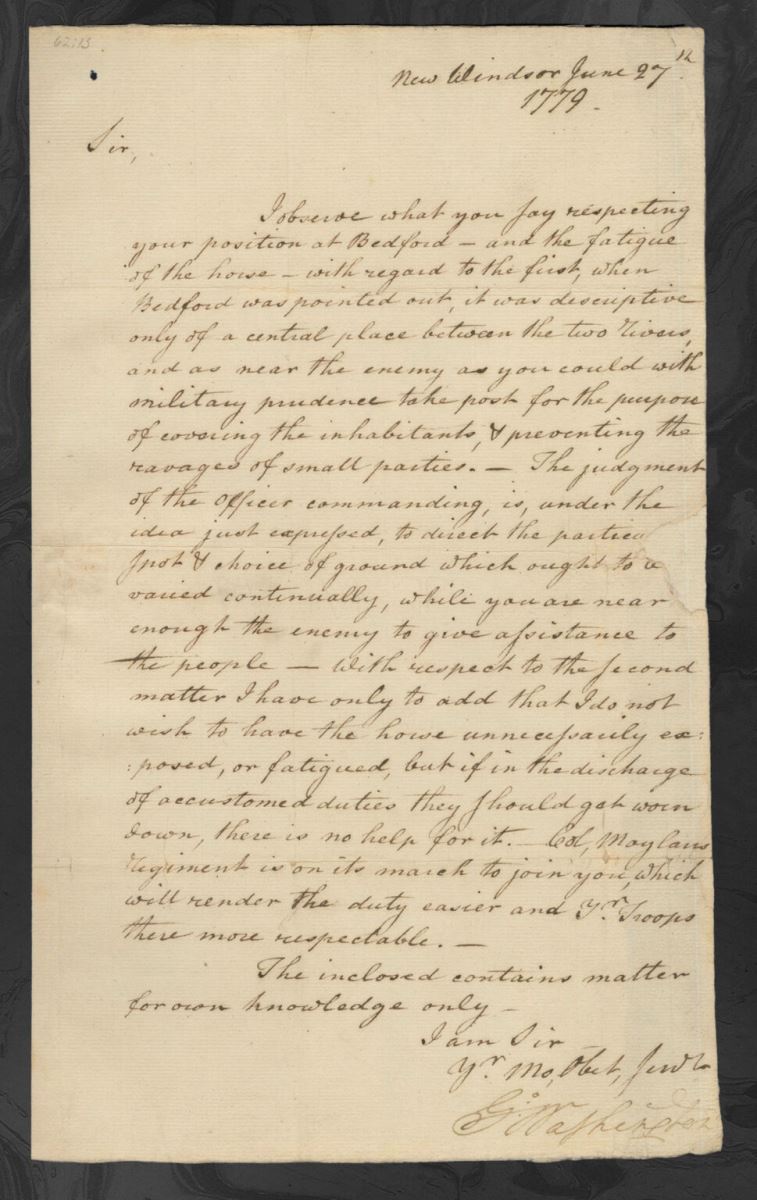 62:13
New Windsor June 27th
1779.
Sir,
I observe what you say respecting
your position at Bedford – and the fatigue
of the horse – with regard to the first, when
Bedford was pointed out, it was descriptive
only of a central place between the two rivers,
and as near the enemy as you could with
military prudence take post for the purpose
of covering the inhabitants, & preventing the
ravages of small parties. – The judgment
of the officer commanding, is, under the
idea just expressed, to direct the particu
spot & choice of ground which ought to
varied continually, while you are near
enough the enemy to give assistance to
the people – With respect to the second
matter I have only to add that I do not
wish to have the horse unnecessarily ex:
:posed, or fatigued, but if in the discharge
of accustomed duties they should get worn
down, there is no help for it. – Col, Moylans
regiment is on its march to join you, which
will render the duty easier and Yr. Troops
there more respectable. –
The inclosed contains matter
for own knowledge only –
I am Sir
Yr. Mo, Obet, Servt
Go: Washington